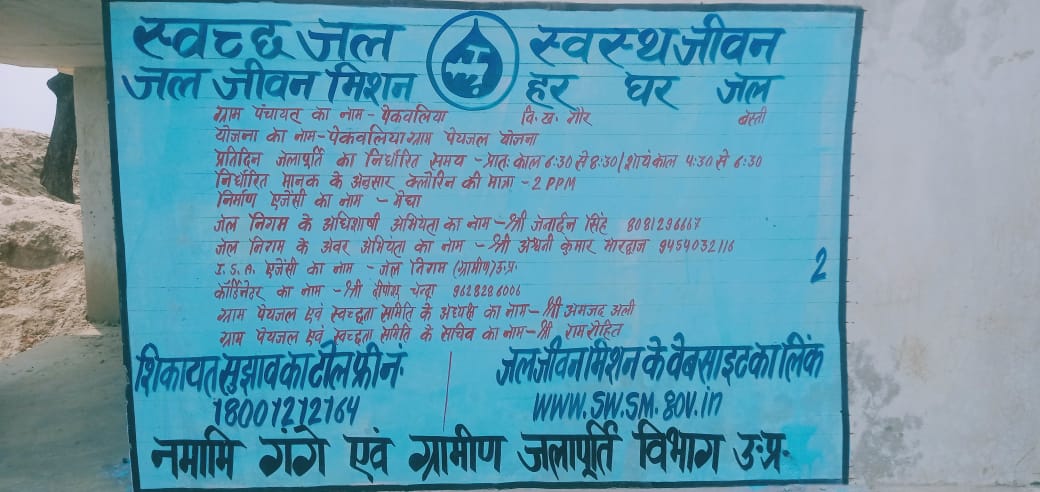 स्वच्छ जल स्वस्थ जीवन
जल जीवन मिशन हर घर जल
ग्राम पंचायत का नाम - पेकवलिया वि.ख. गौर बस्ती
योजना का नाम - पेकवलिया ग्राम पेयजल योजना
प्रतिदिन जलापूर्ति का निर्धारित समय - प्रातः काल 6:30 से 8:30/शायंकाल 4:30 से 6:30
निर्धारित मानक के अनुसार क्लोरिन की मात्रा - 2 PPM
निर्माण एजेंसी का नाम - मेघा
जल निगम के अधिशाषी अभियंता का नाम - श्री जनार्दन सिंह 8081296667
जल निगम के अवर अभियंता का नाम - श्री अश्वनी कुमार भारद्वाज 9459032116
I.S.A. एजेंसी का नाम - जल निगम (ग्रामीण) उ.प्र.
कॉर्डिनेटर का नाम - श्री चन्द्रा 9628286006
ग्राम पेयजल एवं स्वच्छता समिति के अध्यक्ष का नाम - श्री अमजद अली
ग्राम पेयजल एवं स्वच्छता समिति के सचिव का नाम - श्री रामरोहित
2
शिकायत सुझाव का टोल फ्री नं. जल जीवन मिशन के वेबसाइट का लिंक
18001212164 www.sw.sm.gov.in
नमामि गंगे एवं ग्रामीण जलापूर्ति विभाग उ.प्र.